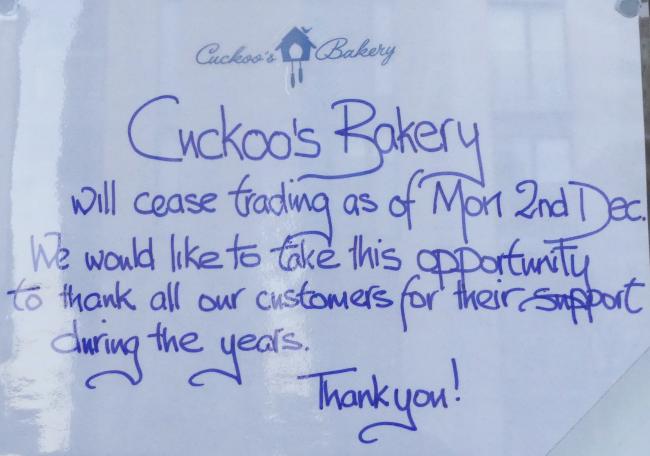 Cuckoo's Bakery
Cuckoo's Bakery
will cease trading as of Mon 2nd Dec.
We would like to take this opportunity
to thank all our customers for their support
during the years.
Thank you!